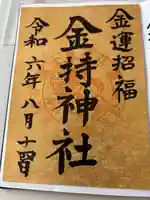 金運招福
金持神社
令和六年八月十習